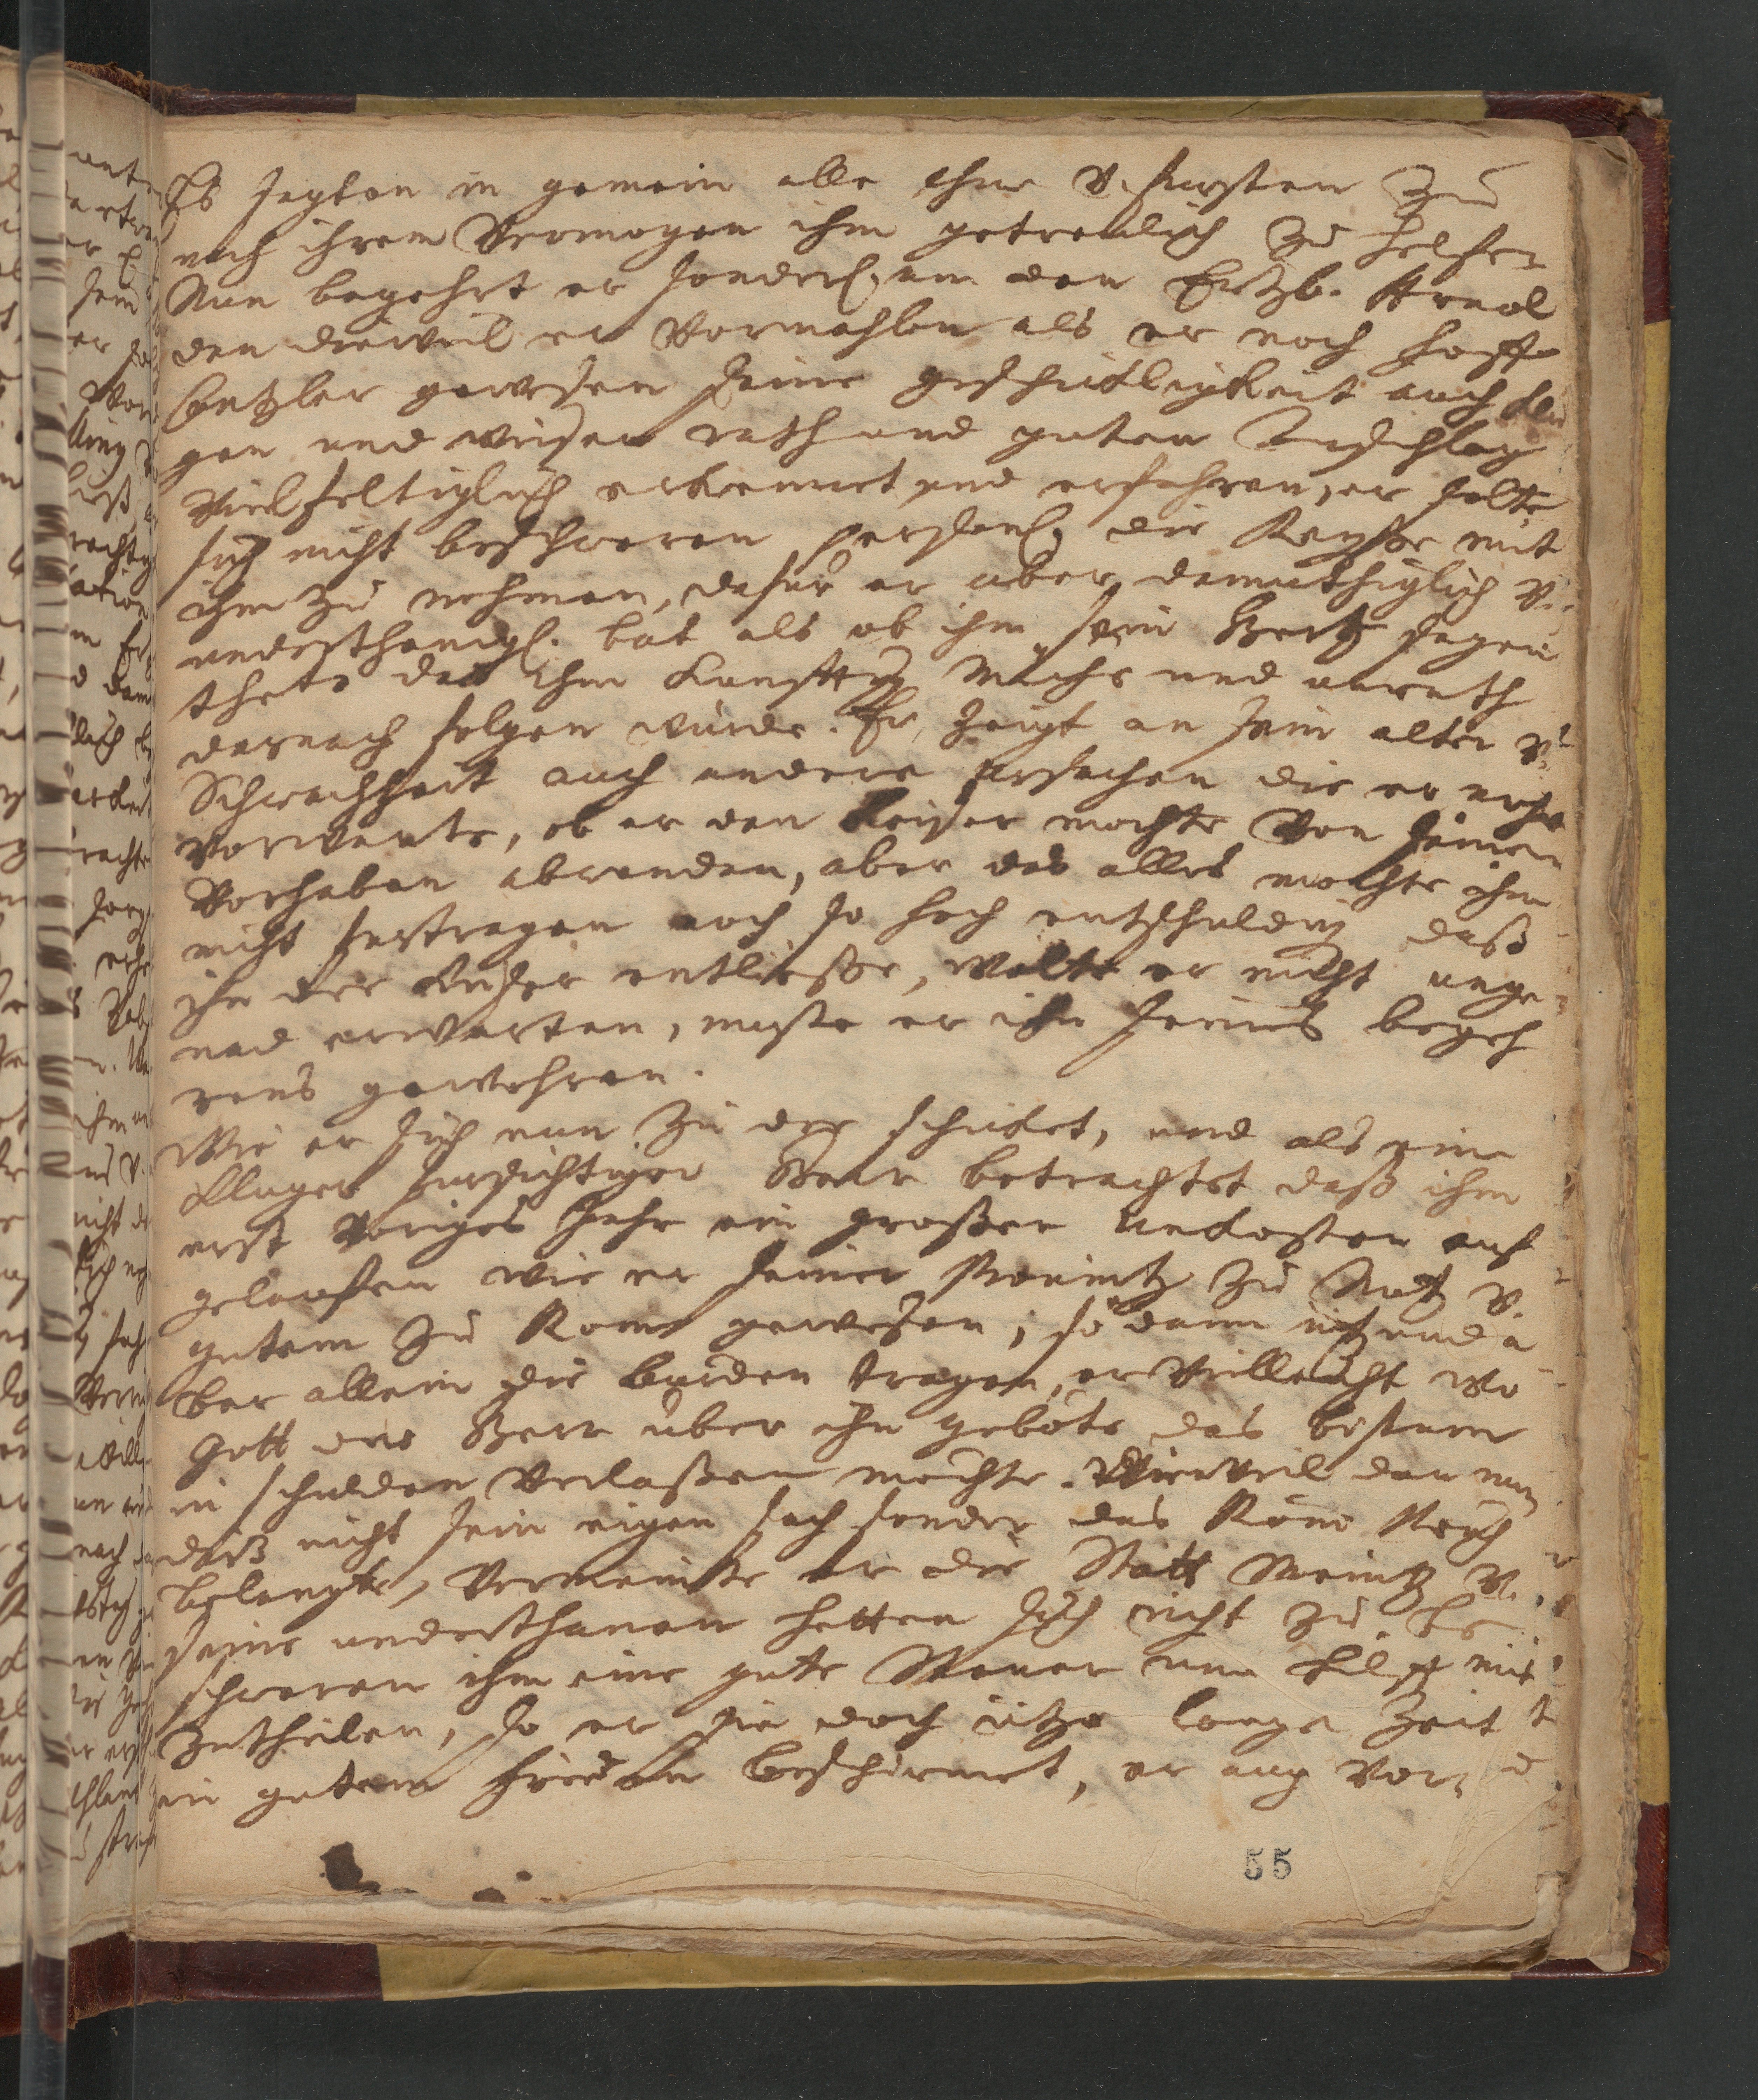 Es sagten in gemein alle Chur v. fursten zu
nach ihrem Vermogen ihm getreulich zu helfen
Nun begehrt er sonderl. an den Ertzb. Arnol
den dieweil er Vormahlen als er noch hoff
Cantzler gewesen seine geschicklichkeit auch klu
gen und weisen rath und guten Anschlag
Vielfeltiglich erkennet und erfahren, er solte
sich nicht beschweren personl. die Reysse mit
ihm zu nehmen, dafur er aber demuthiglich v.
underthanigl. bat als ob ihm sein Hertz sagen
thete das ihm kunfftig Muehe und unrath
darnach folgen wurde. Er zeigt an sein alter v.
Schwachheit auch andere ursachen die er
vorwante, ob er den Keiser mochte Von seinem
Vorhaben abwenden, aber das alles mochte ihn
nicht furtragen noch so hoch entschuldig daß
ihn der Kayser entliesse, wolte er nicht unge
nad erwarten, muste er ihn seines begeh
rens gewehren.
Wie er sich nun zu der schicket, und als ein
kluger fursichtiger Herr betrachtet daß ihm
erst Voriges Jahr ein grosser Unkosten auf
gelauffen wie er seiner provintz zu Nutz v.
gutem zu Rom gewesen, so dann itzund a
ber allein die burden tragen, er Villeicht wo
Gott der Herr uber ihn gebote das bistum
in schulden Verlassen mochte. Dieweil dan nun
diß nicht sein eigen sach sonder das Röm Reich
belangte, Vermeinte er die Statt Meintz v.
seine underthanen hetten sich nicht zu be
schweren ihm eine gute Steuer und hilff mit
zutheilen, so er sie doch itzo lange Zeit
in gutem frieden beschirmet, er auch vor
55